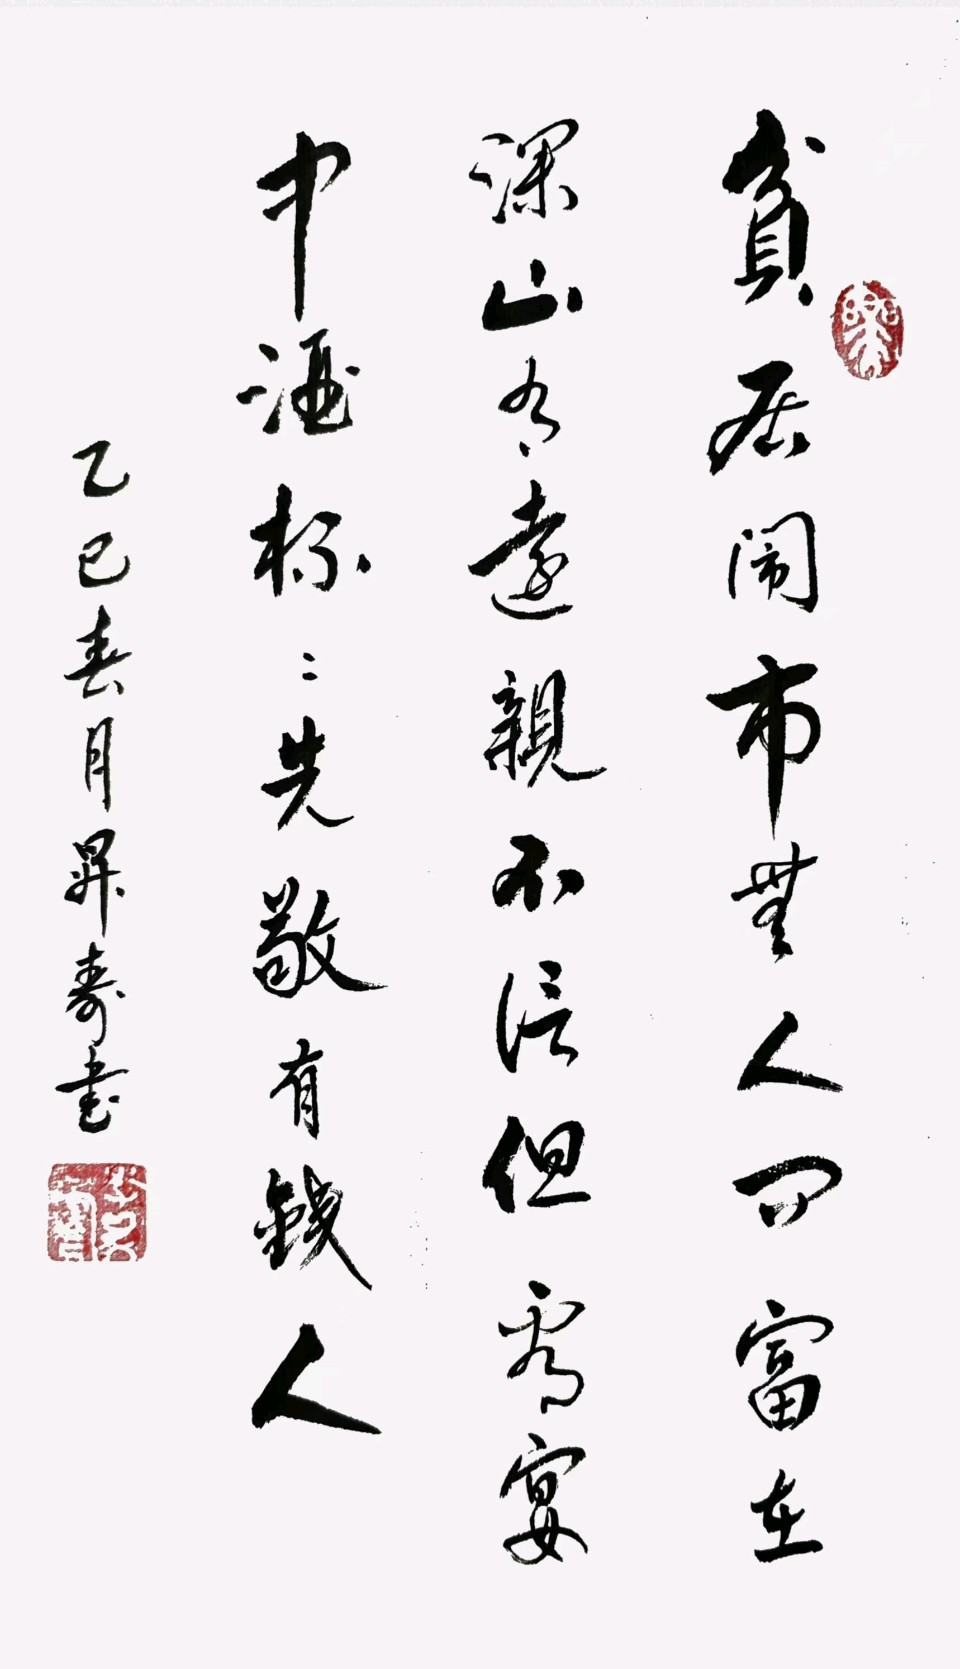 貧居闹市無人问富在
深山有遠親不信但看宴
中酒杯〻先敬有錢人
乙巳春月昇壽書